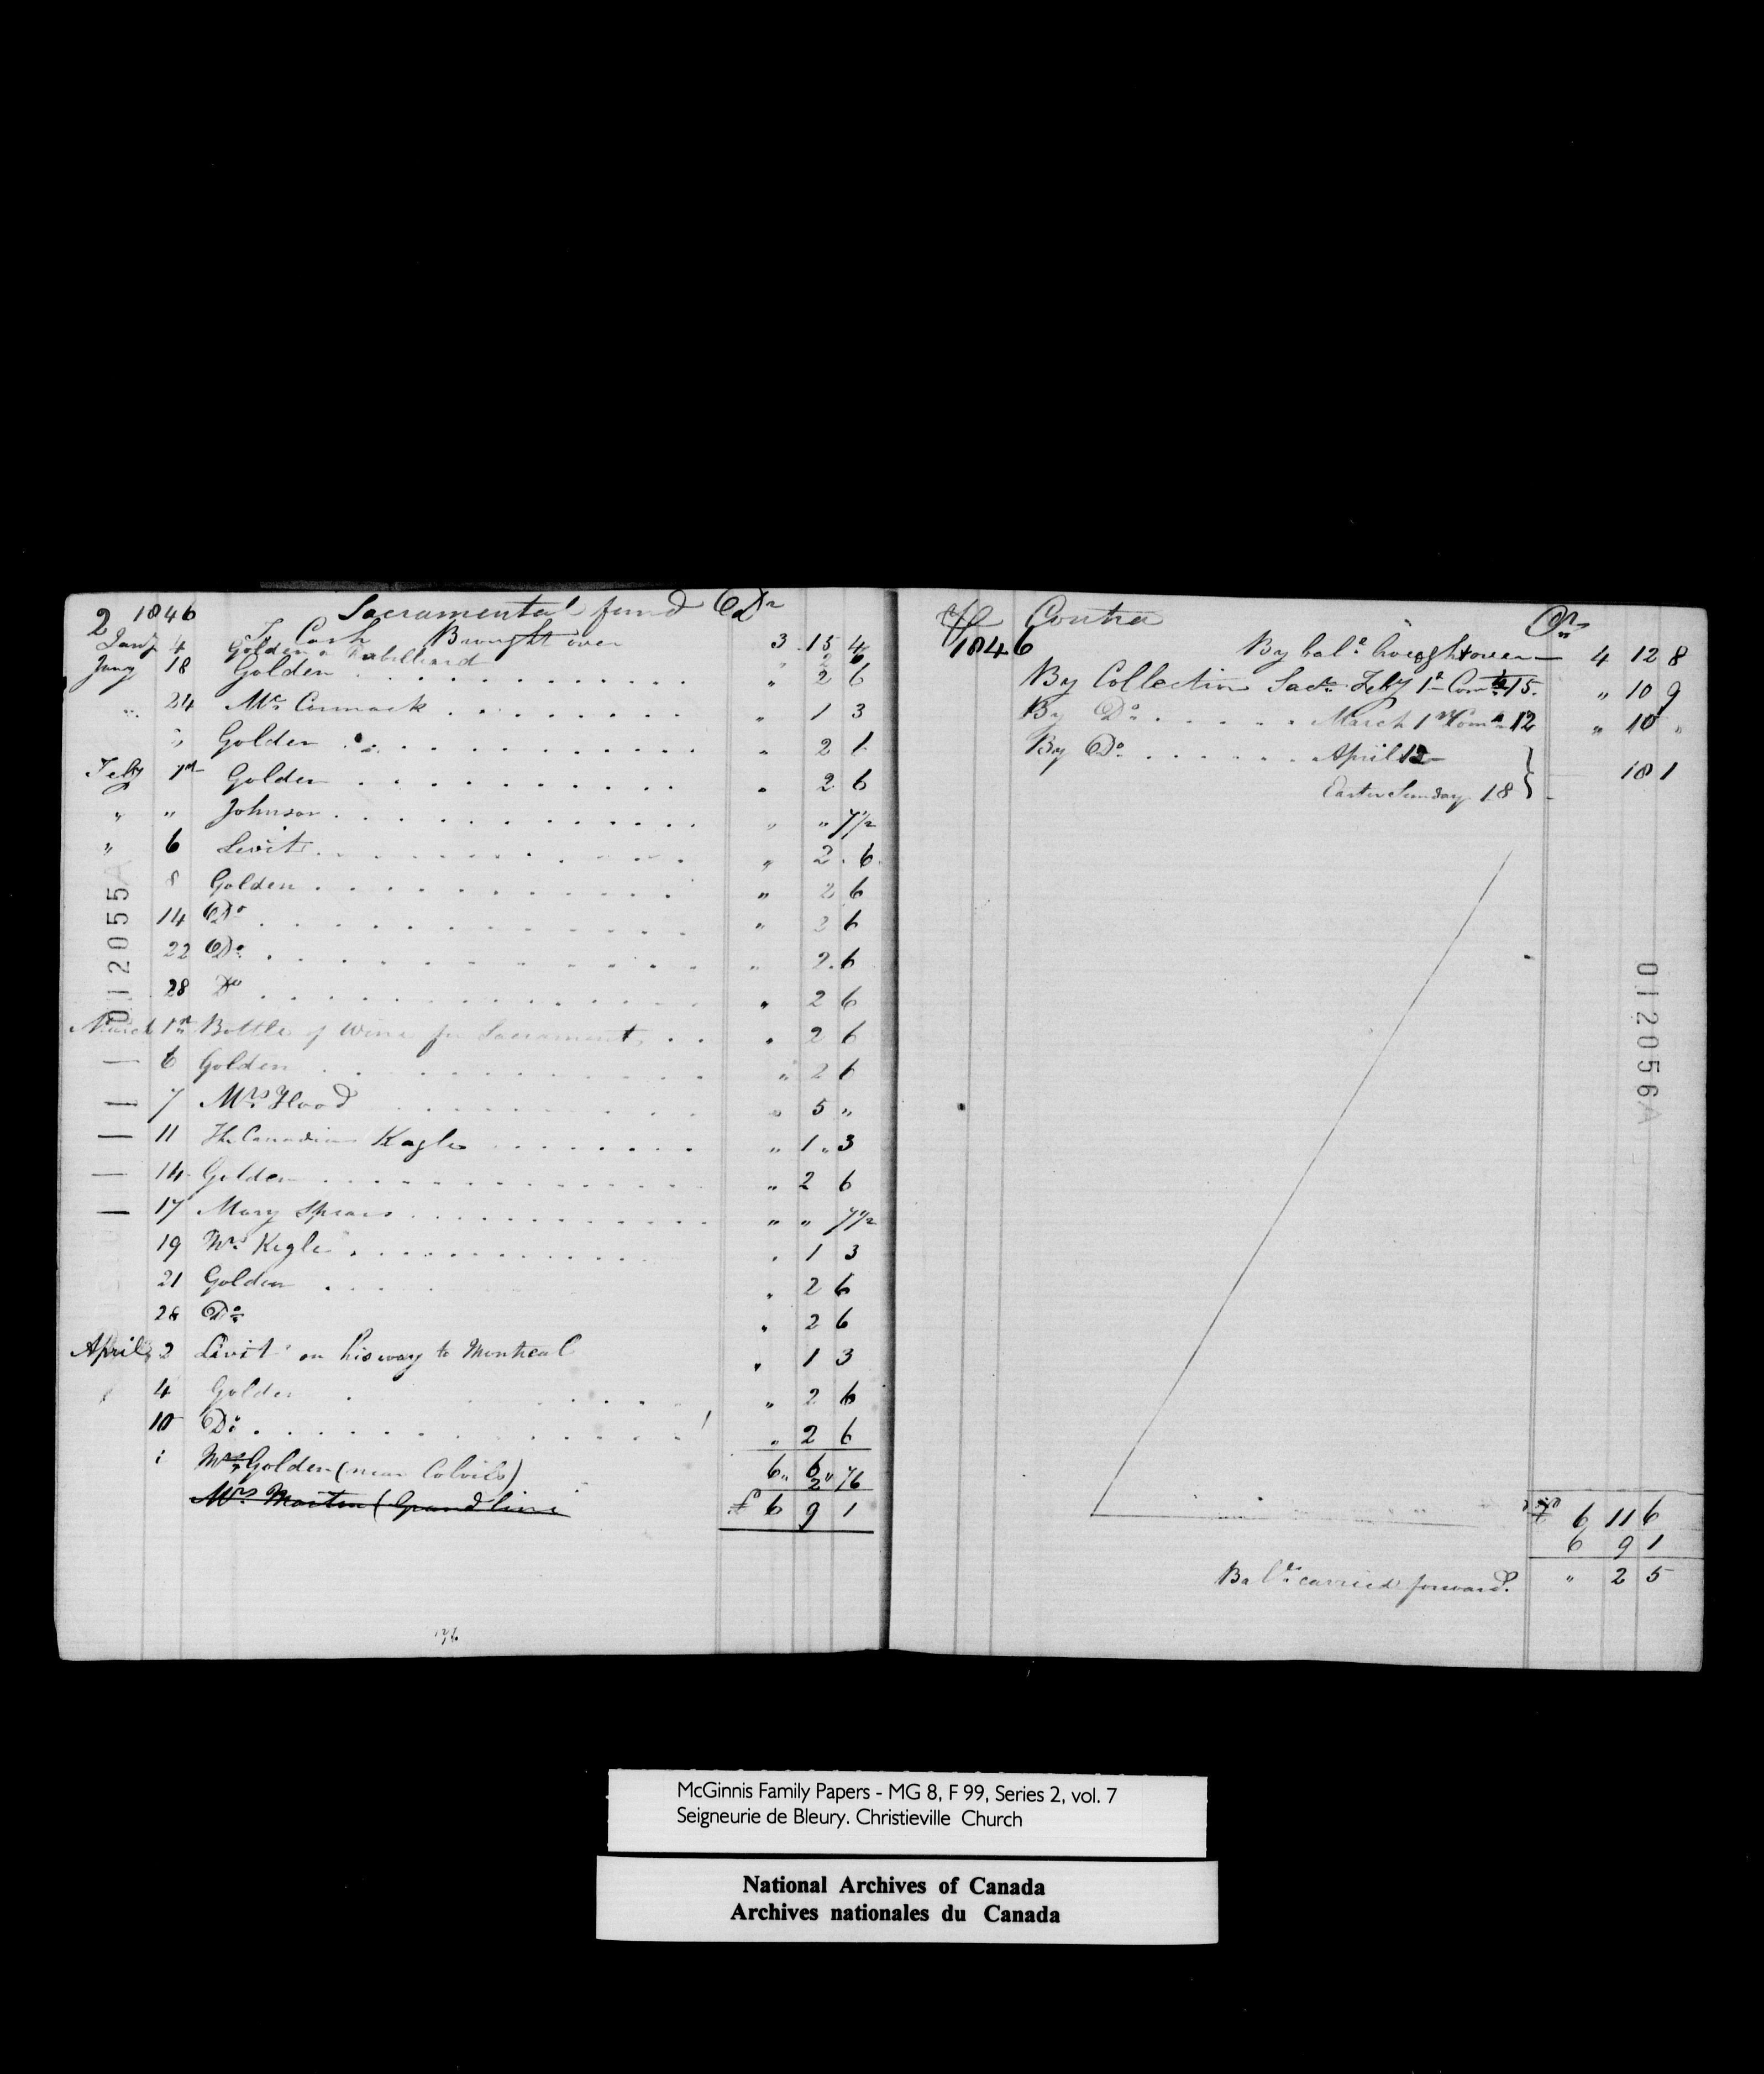 2 1846 Sacramental fund Dr
To Cash Brought over 3 15 4
Jany 4 Golden & Rabelliard " 2 6
Jany 18 Golden . . . . . . . . . . " 2 6
" 24 Mc Cormack . . . . . . . " 1 3
" Golden . . . . . . . . . . " 2 1
Feby 1st Golden . . . . . . . . . . " 2 6
" " Johnson . . . . . . . . . . . " " 7 1/2
" 6 Levit . . . . . . . . . . " 2 6
8 Golden . . . . . . . . . . . " 2 6
14 Do . . . . . . . . . . . . " 2 6
22 Do . . . . . . . . . . . . " 2 6
28 Do . . . . . . . . . . . . " 2 6
March 1st Bottle of Wine for Sacrament . . " 2 6
— 6 Golden . . . . . . . . . . . " 2 6
— 7 Mrs Flood . . . . . . . . . " 5 "
— 11 The Canadian Kagle . . . . . . . " 1 " 3
— 14 Golden . . . . . . . . . . . . " 2 6
— 17 Mary Spears . . . . . . . . . . " " 7 1/2
19 Mr Kegle . . . . . . . . . . " 1 3
21 Golden . . . . " 2 6
28 Do " 2 6
April 2 Livit on his way to Montreal " 1 3
4 Golden . . . . . . . " 2 6
10 Do . . . . . . . . . . . . . " 2 6
Mrs Golden (near Colvils) 6 " 6 " 7
2 " 6
Mrs Martin (Grand line £ 6 9 1
Contra Cr
1846 By bale brought over — 4 12 8
By Collection Sact Feby 1st Comts 15. " 10 9
By Do . . . . . . March 1st Coms 12 " 10 "
By Do . . . . . . April 12 —
Easter Sunday 18 } 18 1
£ 6 11 6
6 9 1
Bale carried forward. " 2 5
012055A
012056A
McGinnis Family Papers - MG 8, F 99, Series 2, vol. 7
Seigneurie de Bleury. Christieville Church
National Archives of Canada
Archives nationales du Canada